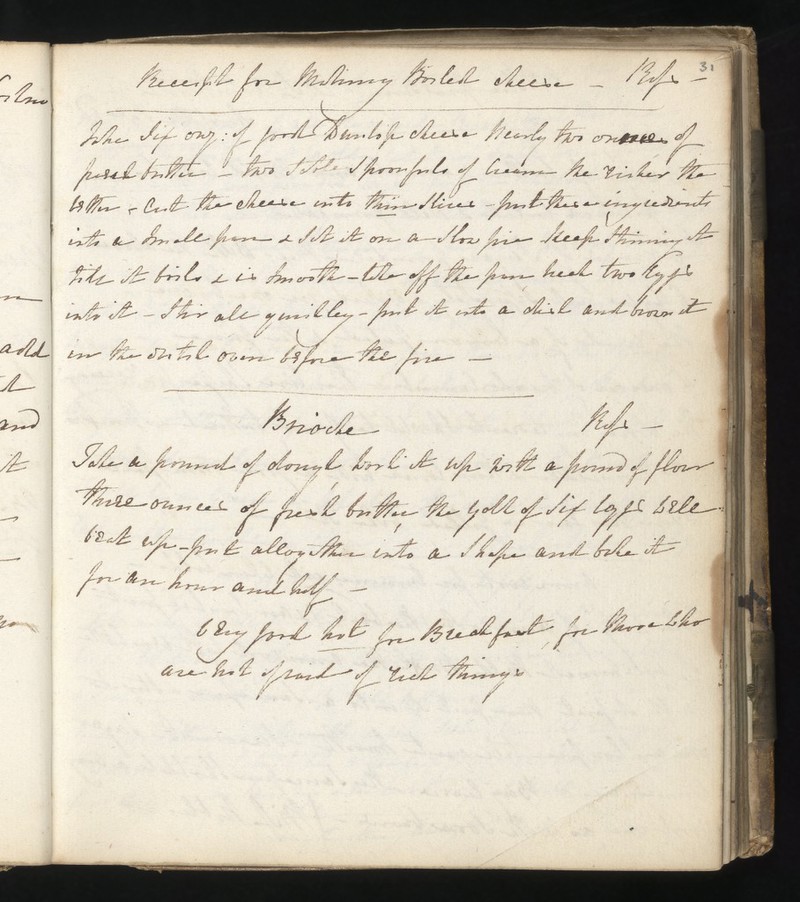 31
Receipt for Making Boiled cheese –
Take Six onz: of good Dunlop cheese Nearly two ounces of
fresh butter – two table Spoonfuls of Cream the richer the
better – Cut the cheese into thin slices – put these ingredients
into a Small pan & Set it on a Slow fire Keep Stirring it
till it boils & is Smooth – take off the pan break two Eggs
into it – Stir all quickley – put it into a dish and brown it
in the dutch oven before the fire –
Brioche
Take a pound of dough, work it up with a pound of flour
three ounces of fresh butter, the yolk of Six Eggs well
beat up – put altogether into a Shape and bake it
for an hour and half –
Very good hot for Breakfast, for those who
are not afraid of rich things
add
and
it